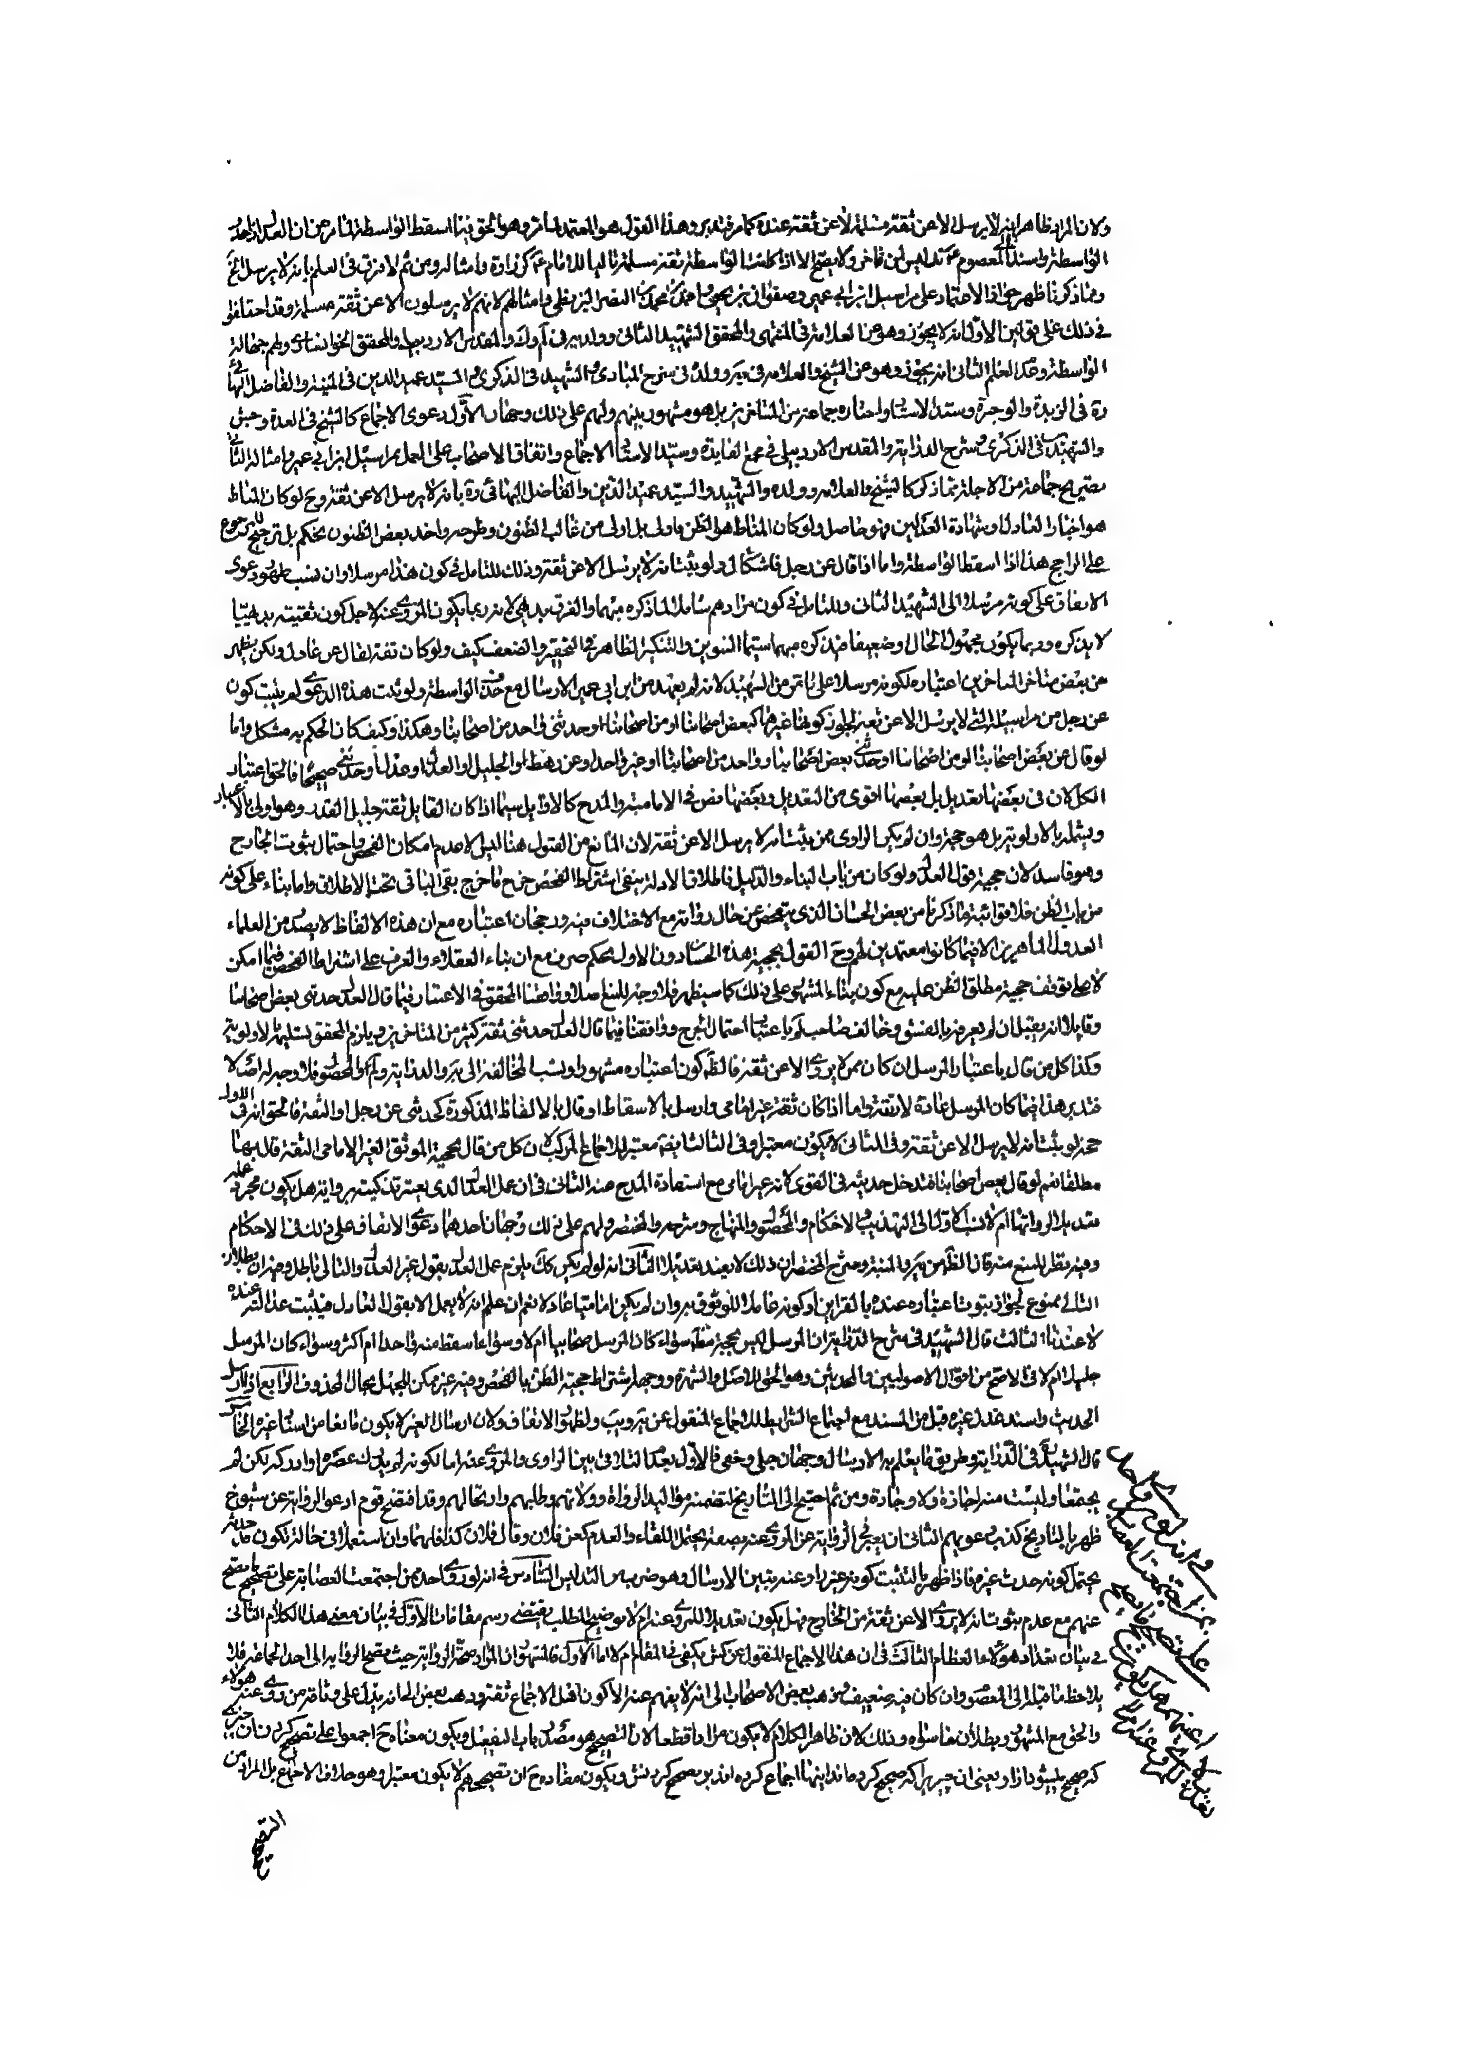 ولان المراد ظاهرا انه لا يرسل الا عن ثقة مسلمة لا عن ثقة عنده كما مر فتدبر وهذا القول هو المعتمد لما مر وهو الحق فيما اسقط الواسطة
الواسطة واسند الى المعصوم ولا يصح الا اذا كانت الواسطة ثقة مسلمة ومن ثم لا فرق في العلم بانه لا يرسل
ومما ذكرنا ظهر الاعتماد على مراسيل ابن ابي عمير وصفوان بن يحيى واحمد بن محمد بن ابي نصر البزنطي وامثالهم لانهم لا يرسلون الا عن ثقة مسلمة وقد اختلفوا
في ذلك على قولين الاول انه لا يجوز وهو عن العلامة في المنتهى والمحقق والشهيد الثاني وولديه والمقدس الاردبيلي والمحقق الخوانساري ولهم جهالة
الواسطة وعدم العلم الثاني انه يجوز وهو عن الشيخ والعلامة في يه وولده في شرح المبادي والشهيد في الذكرى والسيد عميد الدين في المنية والفاضل البهائي
ره في الزبدة والوجيزة واختاره جماعة من المتاخرين بل هو مشهور بينهم ولهم على ذلك وجهان الاول دعوى الاجماع كالشيخ في العدة
والشهيد في الذكرى وشرح الدراية والمقدس الاردبيلي في مجمع الفايدة الاجماع واتفاق الاصحاب على العمل بمراسيل ابن ابي عمير وامثاله الثاني
تصريح جماعة من الاجلة بما ذكر كالشيخ والعلامة وولده والشهيد والسيد عميد الدين والفاضل البهائي ره بانه لا يرسل الا عن ثقة وح لو كان المناط
هو اخبار العادل او شهادة العدلين فهو حاصل ولو كان المناط هو الظن فاولى بل اولى من غالب الظنون وطرحه واخذ بعض الظنون تحكم بل ترجيح للمرجوح
على الراجح هذا اذا اسقط الواسطة واما اذا قال عن رجل فاشكال ولو يثبت انه لا يرسل الا عن ثقة وذلك للتامل في كون هذا مرسلا وان نسب دعوى
الاتفاق على كونه مرسلا الى الشهيد الثاني وللتامل في كون مرادهم شاملا لما ذكره مبهما والفرق بديهي لانه ربما يكون المروي عنه لاجل كون ثقيته بديهيا
لا يذكره وربما يكون مجهول الحال او ضعيفا فيذكره مبهما سيما التنوين والتنكير الظاهر في التحقير والضعف كيف ولو كان ثقة لقال عن عادل ولكن يظهر
من بعض متاخري المتاخرين اعتباره لكونه مرسلا على ما مر من الشهيد لانه لم يعهد من ابن ابي عمير الارسال مع حذف الواسطة ولو ثبت هذه الدعوى لم يثبت كون
عن رجل من مراسيله التي لا يرسل الا عن ثقة لجواز كونها غيرها كبعض اصحابنا او من اصحابنا او حدثني واحد من اصحابنا وهكذا وكيف كان الحكم به مشكل واما
لو قال عن بعض اصحابنا او من اصحابنا او حدثني بعض اصحابنا وواحد من اصحابنا او غير واحد او عن رهط او الجليل او العدل او عدل او حدثني صحيحا فالحق اعتبار
الكل لان في بعضها تعديل بل بعضها اقوى من التعديل وبعضها نص في الامامية والمدح كالاول سيما اذا كان القايل ثقة جليل القدر وهو اولى بالاعتبار
ويشمله بالاولوية بل هو حجة وان لم يكن الراوي ممن يثبت انه لا يرسل الا عن ثقة لان المانع من القبول هنا ليس الا عدم امكان الفحص واحتمال ثبوت الجارح
وهو فاسد لان حجية قول العدل لو كان من باب البناء والدليل فاطلاق الادلة ينفي اشتراط الفحص خرج ما خرج بقي الباقي تحت الاطلاق واما بناء على كونه
من باب الظن فلاقوائية ما ذكرنا من بعض الحسان الذي يتفحص عن حال رواته مع الاختلاف فيه ورجحان اعتباره مع ان هذه الالفاظ لا يصدر من العلماء
العدول الماهرين الا فيما كانوا معتمدين لهم وح القول بحجية هذه الحسان دون الاول تحكم صرف مع ان بناء العقلاء والعرف على اشتراط الفحص فيما امكن
لا على توقف حجية مطلق الظن عليه مع كون بناء المشهور على ذلك كما سيظهر فلا وجه للمنع اصلا ووافقنا المحقق في الاعتبار فيما قال العدل حدثني بعض اصحابنا
وقايلا انه يقبل ان لم يعرفه بالفسق وخالف صاحب لم باعتبار احتمال الجرح ووافقنا فيما قال العدل حدثني ثقة كثير من المتاخرين ويلزم المحقق تسليمها بالاولوية
وكذا كل من قال باعتبار المرسل ان كان ممن لا يروي الا عن ثقة فالظ كون اعتباره مشهورا ونسب المخالفة الى يه والدراية ولم والمحصول فلا وجه له اصلا
فتدبر هذا فيما كان المرسل عادلا ثقة واما اذا كان ثقة غير امامي وارسل بالاسقاط او قال بالالفاظ المذكورة كحدثني عن رجل او الثقة فالحق انه في الاول
حجة لو يثبت انه لا يرسل الا عن ثقة وفي الثاني لا يكون معتبرا وفي الثالث ايضا معتبر للاجماع المركب لان كل من قال بحجية الموثق الغير الامامي الثقة قال بها
مطلقا نعم لو قال بعض اصحابنا فتدخل حديثه في القوي لانه غير امامي مع استفادة المدح منه الثاني في ان عمل العدل الذي يعتبر تزكيته برواية هل يكون مجرد عمله
تعديل الرواتها ام لا نسب الاول الى التهذيب والاحكام والمحصول والمنهاج وشرحه والمختصر ولهم على ذلك وجهان احدهما دعوى الاتفاق على ذلك في الاحكام
وفيه نظر للمنع منه فان الظ من يه والمنية وشرح المختصر ان ذلك لا يفيد تعديلا الثاني انه لو لم يكن كك يلزم عمل العدل بقول غير العدل والتالي باطل وفيه ان بطلان
التالي ممنوع لجواز ثبوت اعتباره عنده بالقراين او كونه عاملا للوثوق به وان لم يكن اماميا عادلا نعم ان علم انه لا يعمل الا بقول العادل فيثبت عدالته عنده
لا عندنا الثالث قال الشهيد في شرح الدراية ان المرسل ليس بحجة مطلقا سواء كان المرسل صحابيا ام لا وسواء اسقط منه واحدا ام اكثر وسواء كان المرسل
جليلا ام لا في الاصح من اقوال الاصوليين والمحدثين وهو الحق للاصل والشهرة ووجهه اشتراط حجية الظن بالفحص وفيه غير ممكن للجهل بحال المحذوف الرابع اذا ارسل
الحديث واسند عدل غيره قبل من المسند مع اجتماع الشرايط للاجماع المنقول عن ولظهور الاتفاق ولان ارسال الغير لا يكون مانعا من اسناد غيره الخامس
قال الشهيد في الدراية وطريق ما يعلم به الارسال وجهان جلي وخفي فالاول بعدم التلاقي بين الراوي والمروي عنه اما لكونه لم يدرك عصره او ادركه لكن لم
يجتمعا وليست منه اجازة ولا وجادة ومن ثم احتيج الى التاريخ لتضمنه مواليد الرواة ووفياتهم وطلبهم وارتحالهم وقد افتضح قوم ادعوا الرواية عن شيوخ
ظهر بالتاريخ كذب دعويهم الثاني ان يعبر في الرواية عن المروي عنه بصيغة يحتمل اللقاء والعدم كعن فلان وقال فلان كذا فانهما وان استعملا في حالة تكون قد حدثه
يحتمل كونه حدث غيره فاذا ظهر بالتثبت كونه غير راو عنه تبين الارسال وهو ضرب من التدليس السادس في انه لو روى واحد ممن اجتمعت العصابة على تصحيح ما يصح
عنهم مع عدم ثبوت انه لا يروي الا عن ثقة من الخارج فهل يكون تعديلا للمروي عنه ام لا توضيح المطلب يقتضي رسم مقامات الاول في بيان معنى هذا الكلام الثاني
في بيان تعداد هؤلاء العظام الثالث في ان هذا الاجماع المنقول عن كش يكفي في المقام ام لا اما الاول فالمشهور ان المراد صحة الرواية حيث تصح الرواية الى احد الجماعة فلا
يلاحظ ما قبله الى المعصوم وان كان فيه ضعيف وذهب بعض الاصحاب الى انه لا يفهم عنه الا كون اهل الاجماع ثقة وذهب بعض الى انه يدل على وثاقة من روى عنه هؤلاء
والحق مع المشهور وبطلان ما سواه وذلك لان ظاهر الكلام لا يكون مرادا قطعا لان التصحيح هو مصدر باب التفعيل ويكون معناه ح اجمعوا على تصحيح كردن ان چيزى
كه صحيح ميشود از او يعنى ان چيزيرا كه صحيح كرده اند اينها اجماع كرده اند بر صحيح كردنش ويكون مفاده ح ان تصحيحهم لا يكون معتبرا وهو خلاف الاجماع بل المراد من
التصحيح
في انه لو روى واحد
ممن اجتمعت العصابة
على تصحيح ما يصح
عنهم هل يكون
تعديلا للمروي عنه ام لا